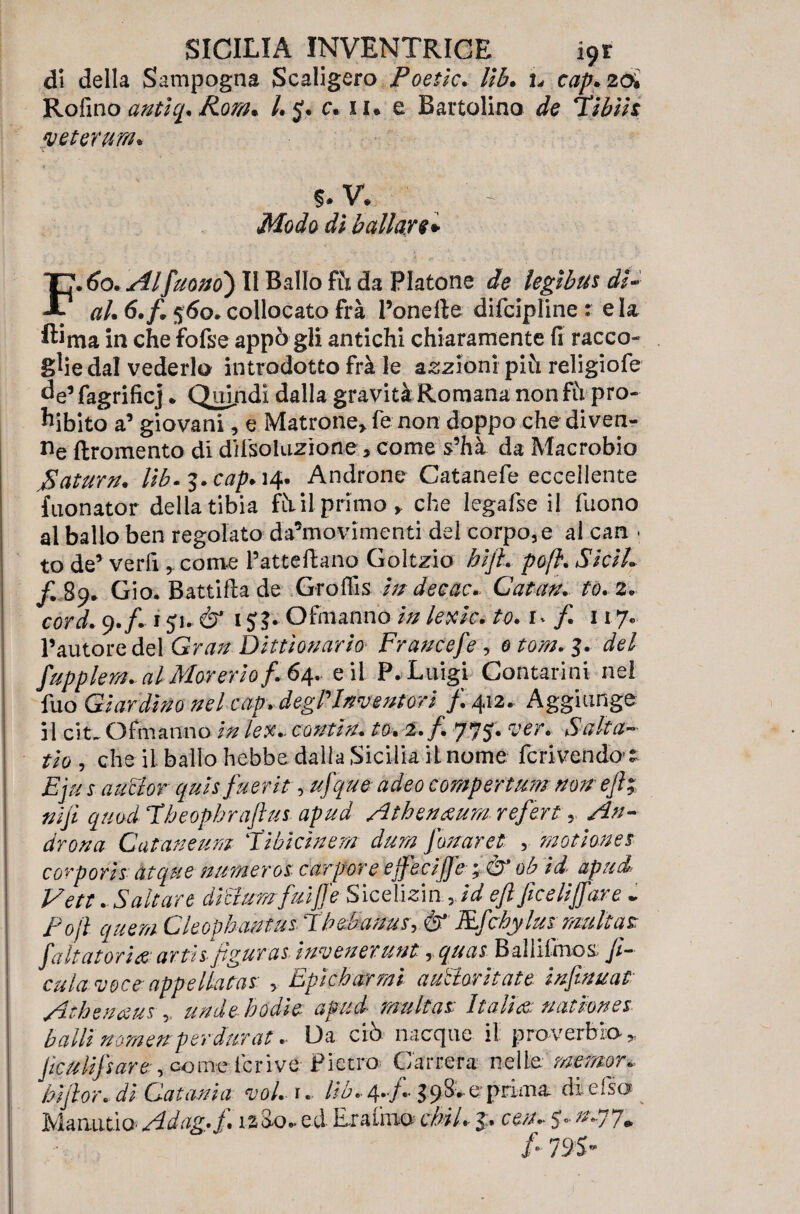 SICILIA INVENTRICE 191
di della Sampogna Scaligero Poetic. lib. 1. cap. 20.
Rosino antiq. Rom. l. 5. c. 11. e Bartolino de Tibiis
veterum.
§. V.
Modo di ballare.
F. 60. Al suono) Il Ballo fù da Platone de legibus di-
al. 6. f. 560. collocato frà l'oneste discipline : e la
stima in che fosse appò gli antichi chiaramente si racco-
glie dal vederlo introdotto frà le azzioni più religiose
de' sagrificj. Quindi dalla gravità Romana non fù pro-
hibito a' giovani, e Matrone, se non doppo che diven-
ne stromento di dissoluzione, come s'hà da Macrobio
Saturn. lib. 3. cap. 14. Androne Catanese eccellente
suonator della tibia fù il primo, che legasse il suono
al ballo ben regolato da'movimenti del corpo, e al can
to de' versi, come l'attestano Goltzio hist. post. Sicil.
f. 89. Gio. Battista de Grossis in decac. Catan. to. 2.
cord. 9. f. 151. & 153. Osmanno in lexic. to. 1. f. 117.
l'autore del Gran Dittionario Francese, o tom. 3. del
supplem. al Morerio f. 64. e il P. Luigi Contarini nel
suo Giardino nel cap. degl'Inventori f. 412. Aggiunge
il cit. Osmanno in lex. contin. to. 2. f. 775. ver. Salta-
tio, che il ballo hebbe dalla Sicilia il nome scrivendo:
Ejus auctor quis fuerit, usque adeo compertum non est;
nisi quod Theophrastus apud Athenæum refert, An-
drona Cataneum Tibicinem dum sonaret, motiones
corporis atque numeros carpore effecisse; & ob id apud
Vett. Saltare dictum fuisse Sicelizin, id est sicelissare.
Post quem Cleophantus Thebanus, & Æschylus multas
saltatoriæ artis figuras invenerunt, quas Ballismos si-
cula voce appellatas, Epicharmi auctoritate insinuat
Athenæus, unde hodie apud multas Italiæ nationes
balli nomen perdurat. Da ciò nacque il proverbio,
siculissare, come scrive Pietro Carrera nelle memor.
histor. di Catania vol. 1. lib. 4. f. 398. e prima di esso
Manutio Adag. f. 1280. ed Erasmo chil. 3. cen. 5. n. 77.
f. 795.